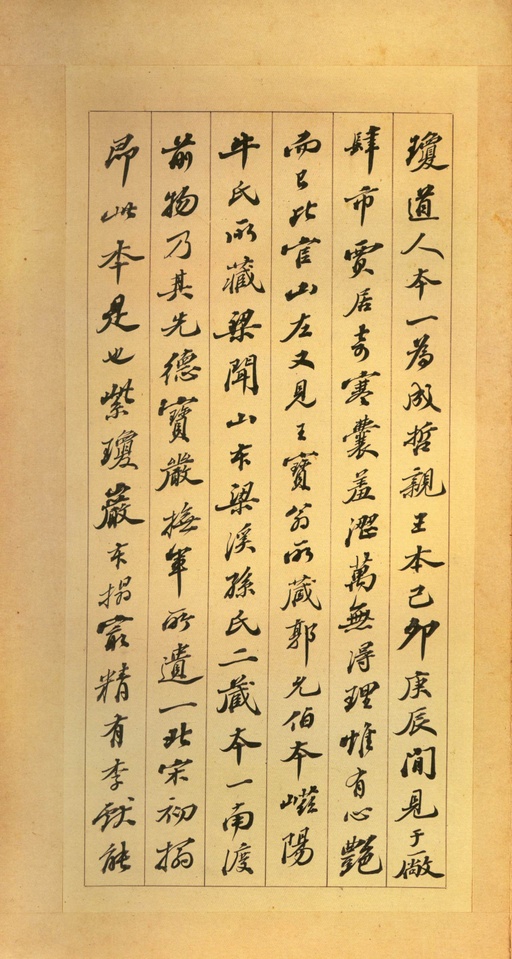 瓊道人本一為成哲親王本己卯庚辰間見于廠
肆市賈居奇寒囊羞澀萬無得理惟有心艷
而已此官山左又見王寶翁所藏郭允伯本嶝陽
牛氏所藏梁聞山本梁溪孫氏二藏本一南渡
前物乃其先德寶嚴撫軍所遺一北宋初搨
即此本是也紫瓊巖本搨最精有李猷能